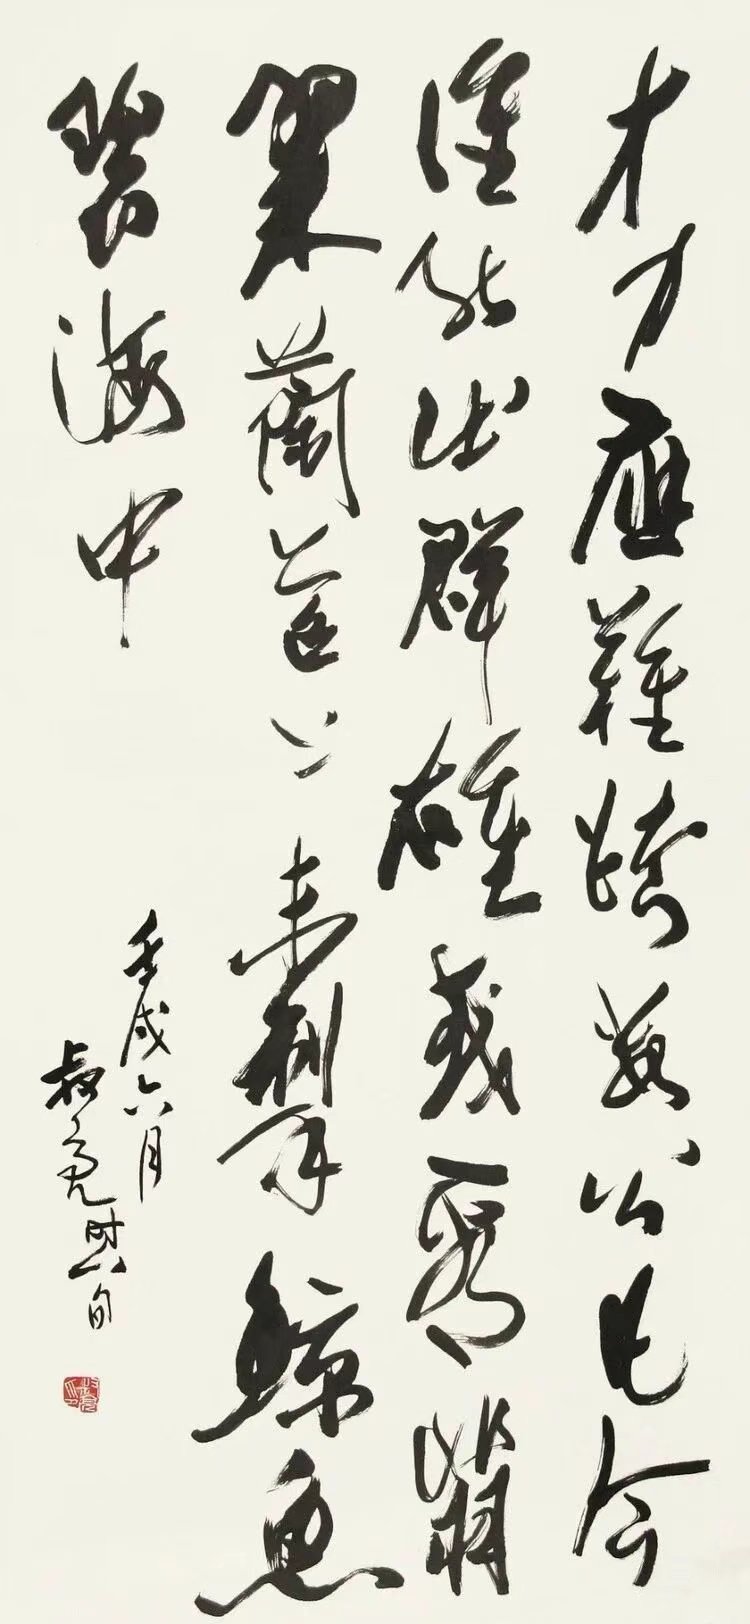 才力應難跨數公凡今
誰能出群雄或看翡
翠蘭苕上未掣鯨魚
碧海中
壬戌六月
叔亮时八旬